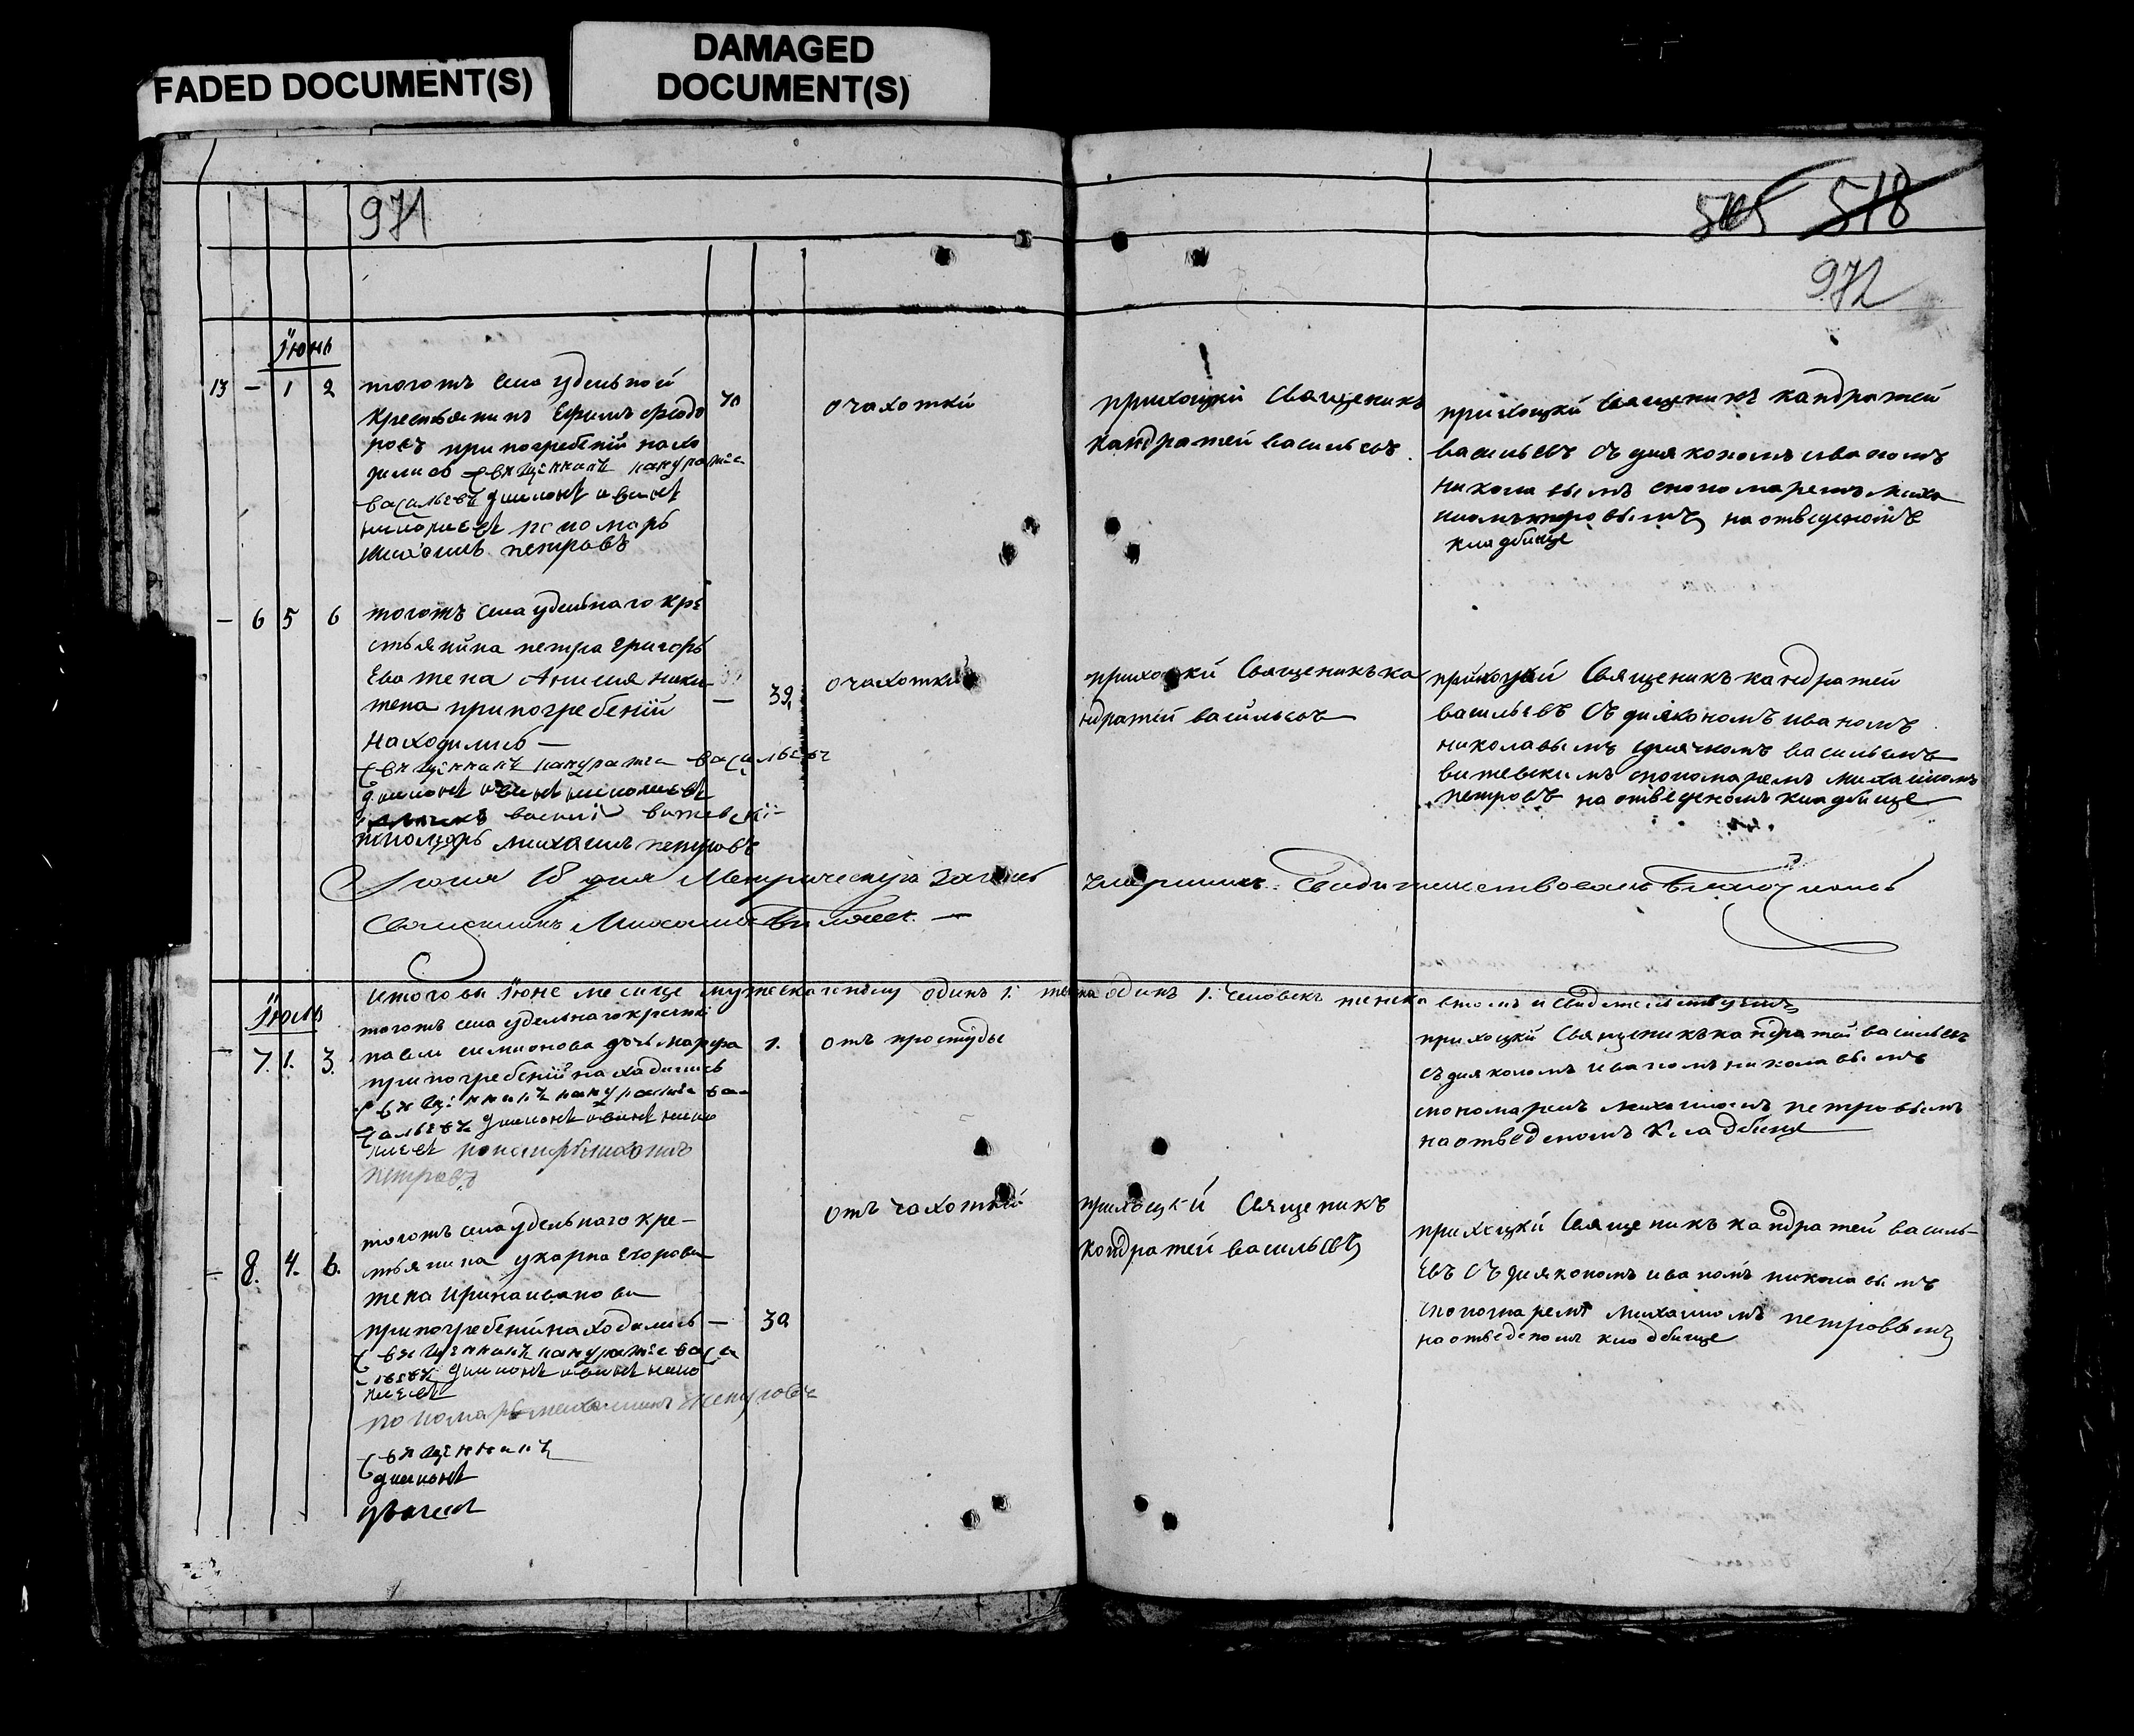 FADED DOCUMENT(S)
DAMAGED
DOCUMENT(S)
971
518
972
Iюнь
13 — 1 2
тогожъ села удельной
крестьянинъ Ефимъ феодо
ровъ при погребенïй нахо
дились священникъ кандратiе
васильевъ диаконъ иванъ
николаевъ пономарь
михаилъ петровъ
70
очахотки
прихоцкiй Священикъ
кандратей васильевъ
прихоцкiй Священикъ кандратей
васильевъ съ дияконолъ иваномъ
николавымъ спономаремъ миха
иломъ петровымъ на отведеномъ
кладбище
— 6 5 6
тогожъ села удельнаго кре
стьянина петра григорь
Ева жена Анисия ники
тена припогребенiй
находились —
священникъ кандратiе васильевъ
диаконъ иванъ николаевъ
василiй витевскiй
пономарь михаилъ петровъ
— 39
очахотки
прихоцкiй Священикъ ка
ндратей васильевъ
прихоцкiй Священикъ кандратей
васильевъ съ дияконолъ иваномъ
николавымъ сдиячкомъ васильемъ
витевскимъ спономаремъ михаиломъ
петровъ на отведеномъ кладбище
Iюня 18 дня Метрическую запись
свидетельствовалъ Благочинный
Священникъ Михаилъ
Итого въ Iюне месяце мужеска полу одинъ 1. женска одинъ 1. человекъ
втомъ и свидетельствуемъ
Iюль
— 7. 1. 3.
тогожъ села удельнаго крестья
симионова дочь марфа
припогребенiй находились
священникъ кандратiе ва
сильевъ диаконъ иванъ нико
лаевъ пономарь михаилъ
петровъ
1.
отъ простуды
прихоцкiй Священикъ кандратей васильевъ
съ дияконолъ иваномъ николавымъ
спономаремъ михаиломъ петровымъ
на отведеномъ кладбище
— 8. 4. 6.
тогожъ села удельнаго кре—
стьянина укарпа Егорова
жена ирина иванова
припогребенiй находились
священникъ кандратiе васи
льевъ диаконъ иванъ нико
лаевъ
пономарь михаилъ петровъ
— 30
отъ чахоткй
прихоцкiй Священикъ
кондратей васильевъ
прихоцкiй Священикъ кандратей василь—
Евъ съ дияконолъ иваномъ николавымъ
спономаремъ михаиломъ петровымъ
на отведеномъ кладбище
священникъ
диаконъ
дьячекъ